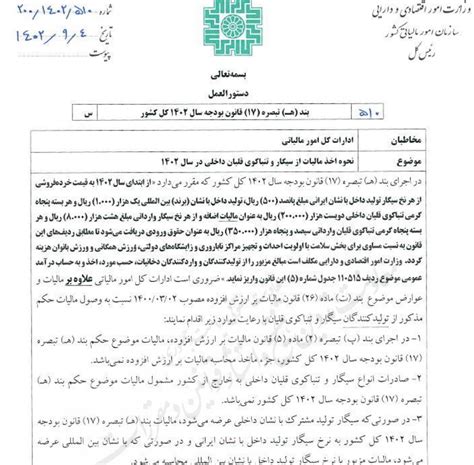 وزارت امور اقتصادی و دارایی
سازمان امور مالیاتی کشور
رئیس کل
شماره ۲۰۰/۱۴۰۲/۵۱۰
تاریخ ۱۴۰۲/۹/۴
پیوست
بسمه‌تعالی
دستورالعمل
۵۱۰ بند (هـ) تبصره (۱۷) قانون بودجه سال ۱۴۰۲ کل کشور س
مخاطبان ادارات کل امور مالیاتی
موضوع نحوه اخذ مالیات از سیگار و تنباکوی قلیان داخلی در سال ۱۴۰۲
در اجرای بند (هـ) تبصره (۱۷) قانون بودجه سال ۱۴۰۲ کل کشور که مقرر می‌دارد «از ابتدای سال ۱۴۰۲ به قیمت خرده‌فروشی
از هر نخ سیگار تولید داخل با نشان ایرانی پانصد (۵۰۰) ریال، تولید داخل با نشان (برند) بین المللی یک هزار (۱.۰۰۰) ریال و هر بسته پنجاه
گرمی تنباکوی قلیانی داخلی دویست هزار (۲۰۰.۰۰۰) ریال به عنوان مالیات اضافه و از هر نخ سیگار وارداتی مبلغ هشت هزار (۸.۰۰۰) ریال و هر
بسته پنجاه گرمی تنباکوی قلیانی وارداتی سیصد و پنجاه هزار (۳۵۰.۰۰۰) ریال به عنوان حقوق ورودی دریافت می‌شود تا مطابق ردیف‌های این
قانون به نسبت مساوی برای بخش سلامت با اولویت احداث و تجهیز مراکز ناباروری و زایشگاه‌های دولتی، ورزش همگانی و ورزش بانوان هزینه
گردد. وزارت امور اقتصادی و دارایی مکلف است مبالغ مزبور را از تولیدکنندگان و واردکنندگان دخانیات، حسب مورد، اخذ و به حساب درآمد
عمومی موضوع ردیف ۱۱۰۵۱۵ جدول شماره (۵) این قانون واریز نماید.» ضروری است ادارات کل امور مالیاتی علاوه بر مالیات و
عوارض موضوع بند (ت) ماده (۲۶) قانون مالیات بر ارزش افزوده مصوب ۱۴۰۰/۰۳/۰۲ نسبت به وصول مالیات حکم
مذکور از تولیدکنندگان سیگار و تنباکوی قلیان با رعایت موارد زیر اقدام نمایند:
۱- در اجرای بند (پ) تبصره (۲) ماده (۵) قانون مالیات بر ارزش افزوده، مالیات موضوع حکم بند (هـ) تبصره
(۱۷) قانون بودجه سال ۱۴۰۲ کل کشور، جزء مأخذ محاسبه مالیات بر ارزش افزوده نمی‌باشد.
۲- صادرات انواع سیگار و تنباکوی قلیان داخلی به خارج از کشور مشمول مالیات موضوع حکم بند (هـ)
تبصره (۱۷) قانون بودجه سال ۱۴۰۲ کل کشور نمی‌باشد.
۳- در صورتی‌که سیگار تولید مشترک با نشان ایرانی عرضه می‌شود، مالیات موضوع بند (هـ) تبصره (۱۷) قانون
بودجه سال ۱۴۰۲ کل کشور به نرخ سیگار تولید داخل با نشان ایرانی و در صورتی که با نشان بین المللی عرضه
می‌شود، مالیات مزبور با نرخ سیگار تولید داخل با نشان بین‌المللی محاسبه می‌شود.